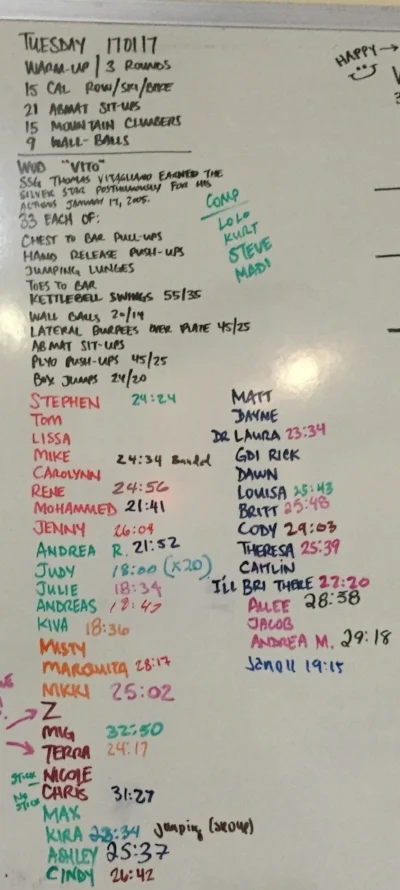 TUESDAY 170117
WARM-UP | 3 ROUNDS
15 CAL ROW/SKI/BIKE
21 ABMAT SIT-UPS
15 MOUNTAIN CLIMBERS
9 WALL-BALLS
HAPPY →
WOD "VITO"
SSG THOMAS VITAGLIANO EARNED THE
SILVER STAR POSTHUMOUSLY FOR HIS
ACTIONS JANUARY 17, 2005.
33 EACH OF:
CHEST TO BAR PULL-UPS
HAND RELEASE PUSH-UPS
JUMPING LUNGES
TOES TO BAR
KETTLEBELL SWINGS 55/35
WALL BALLS 20/14
LATERAL BURPEES OVER PLATE 45/25
ABMAT SIT-UPS
PLYO PUSH-UPS 45/25
BOX JUMPS 24/20
COMP
LOLO
KURT
STEVE
MADI
STEPHEN 24:24
TOM
LISSA
MIKE 24:34 Banded
CAROLYNN
RENE 24:56
MOHAMMED 21:41
JENNY 26:04
ANDREA R. 21:52
JUDY 18:00 (x20)
JULIE 18:34
ANDREAS 18:47
KIVA 18:36
MISTY
MARQUITA 28:17
NIKKI 25:02
Z
MIG 32:50
TERRA 24:17
STICK NICOLE
NO STICK CHRIS 31:27
MAX
KIRA 23:34 Jumping
ASHLEY 25:37
CINDY 26:42
MATT
DAYNE
DR LAURA 23:34
GDI RICK
DAWN
LOUISA 25:43
BRITT 25:48
CODY 29:03
THERESA 25:39
CAITLIN
I'LL BRI THERE 27:20
ALLEE 28:38
JACOB
ANDREA M. 29:18
Janoll 19:15